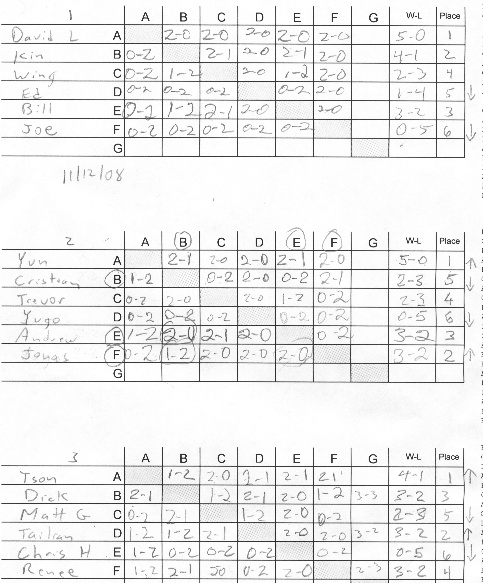 1 A B C D E F G W-L Place
David L A 2-0 2-0 2-0 2-0 2-0 5-0 1
Kin B 0-2 2-1 2-0 2-1 2-0 4-1 2
Wing C 0-2 1-2 2-0 1-2 2-0 2-3 4
Ed D 0-2 0-2 0-2 0-2 2-0 1-4 5 ↓
Bill E 0-2 1-2 2-1 2-0 2-0 3-2 3
Joe F 0-2 0-2 0-2 0-2 0-2 0-5 6 ↓
G
11/12/08
2 A B C D E F G W-L Place
Yun A 2-1 2-0 2-0 2-1 2-0 5-0 1 ↑
B 1-2 0-2 2-0 0-2 2-1 2-3 5 ↓
Trevor C 0-2 2-0 2-0 1-2 0-2 2-3 4
Yugo D 0-2 0-2 0-2 0-2 0-2 0-5 6 ↓
Andrew E 1-2 2-0 2-1 2-0 0-2 3-2 3
Jonas F 0-2 1-2 2-0 2-0 2-0 3-2 2 ↑
G
3 A B C D E F G W-L Place
Tson A 1-2 2-0 2-1 2-1 21 4-1 1 ↑
Dick B 2-1 1-2 2-1 2-0 1-2 3-3 3-2 3
Matt G C 0-2 2-1 1-2 2-0 0-2 2-3 5 ↓
D 1-2 1-2 2-1 2-0 2-0 3-2 3-2 2 ↑
Chris H E 1-2 0-2 0-2 0-2 0-2 0-5 6 ↓
Renee F 1-2 2-1 0-2 2-0 2-3 3-2 4